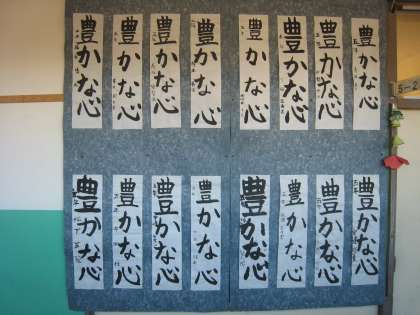 豊かな心
豊かな心
豊かな心
豊かな心
豊かな心
豊かな心
豊かな心
豊かな心
5-2
豊かな心
豊かな心
豊かな心
豊かな心
豊かな心
豊かな心
豊かな心
豊かな心